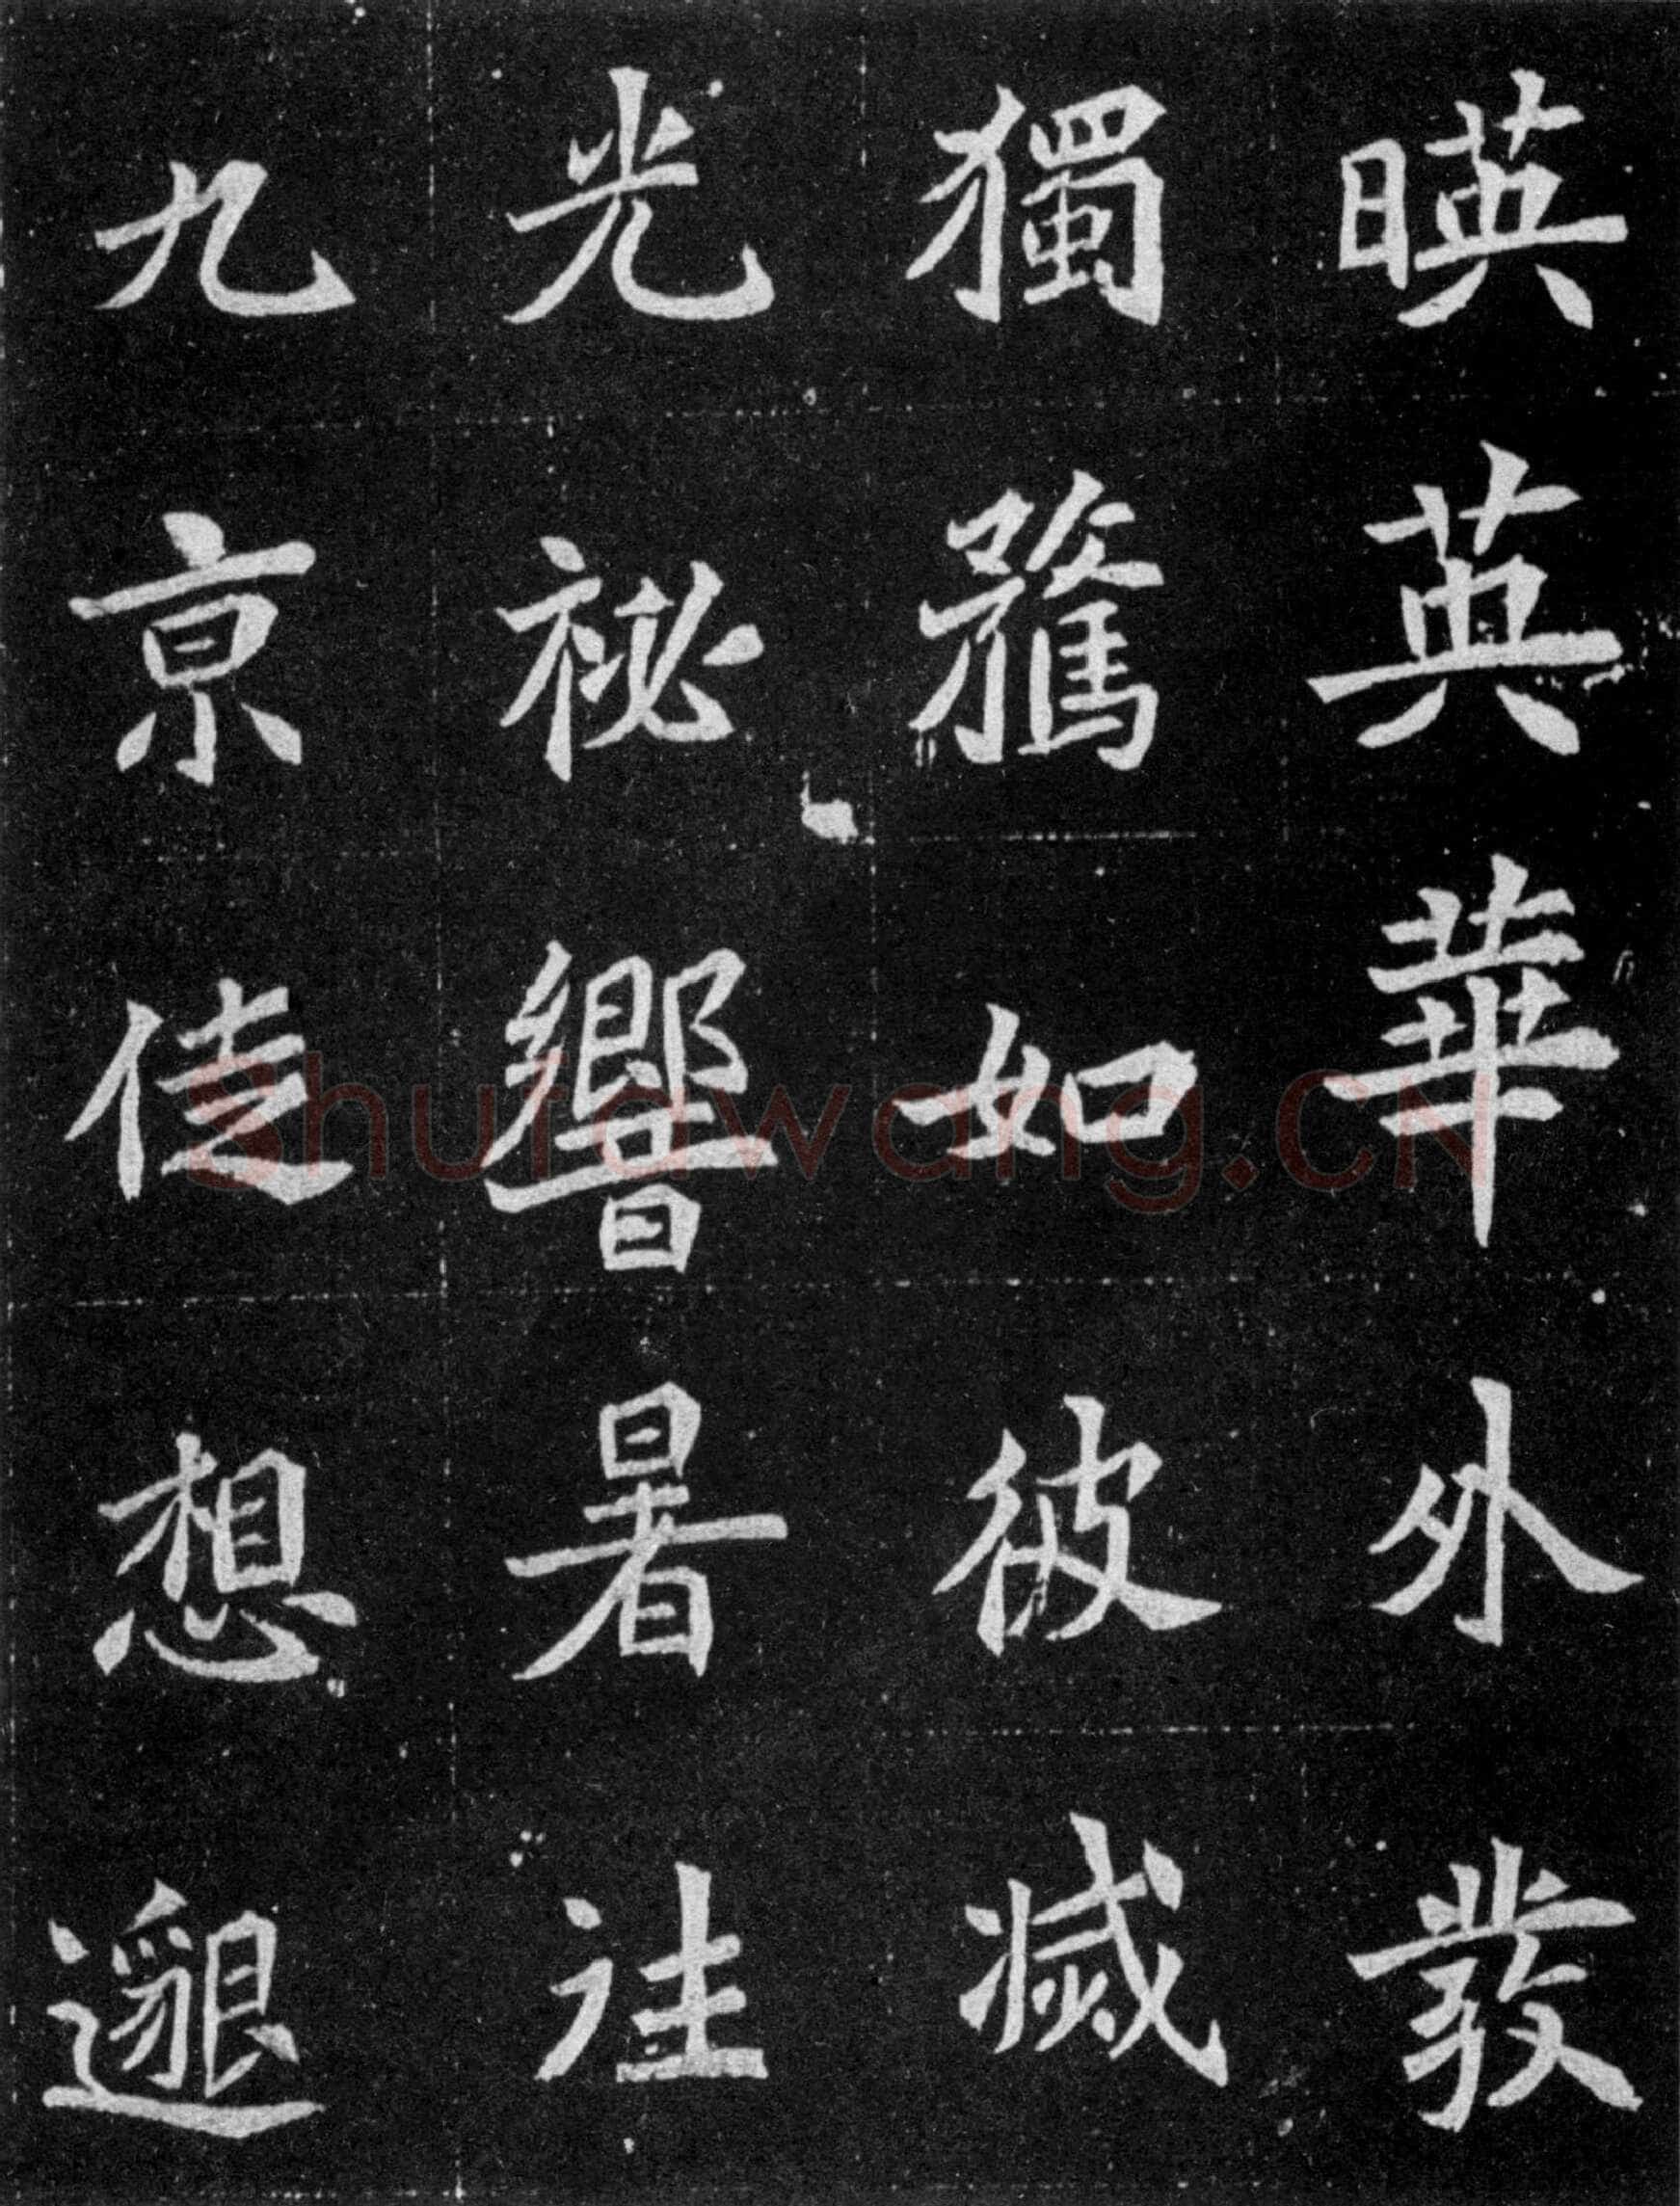 暎英華外發
獨騖如彼滅
光祕響暑往
九京徒想邈
Shufawang.CN